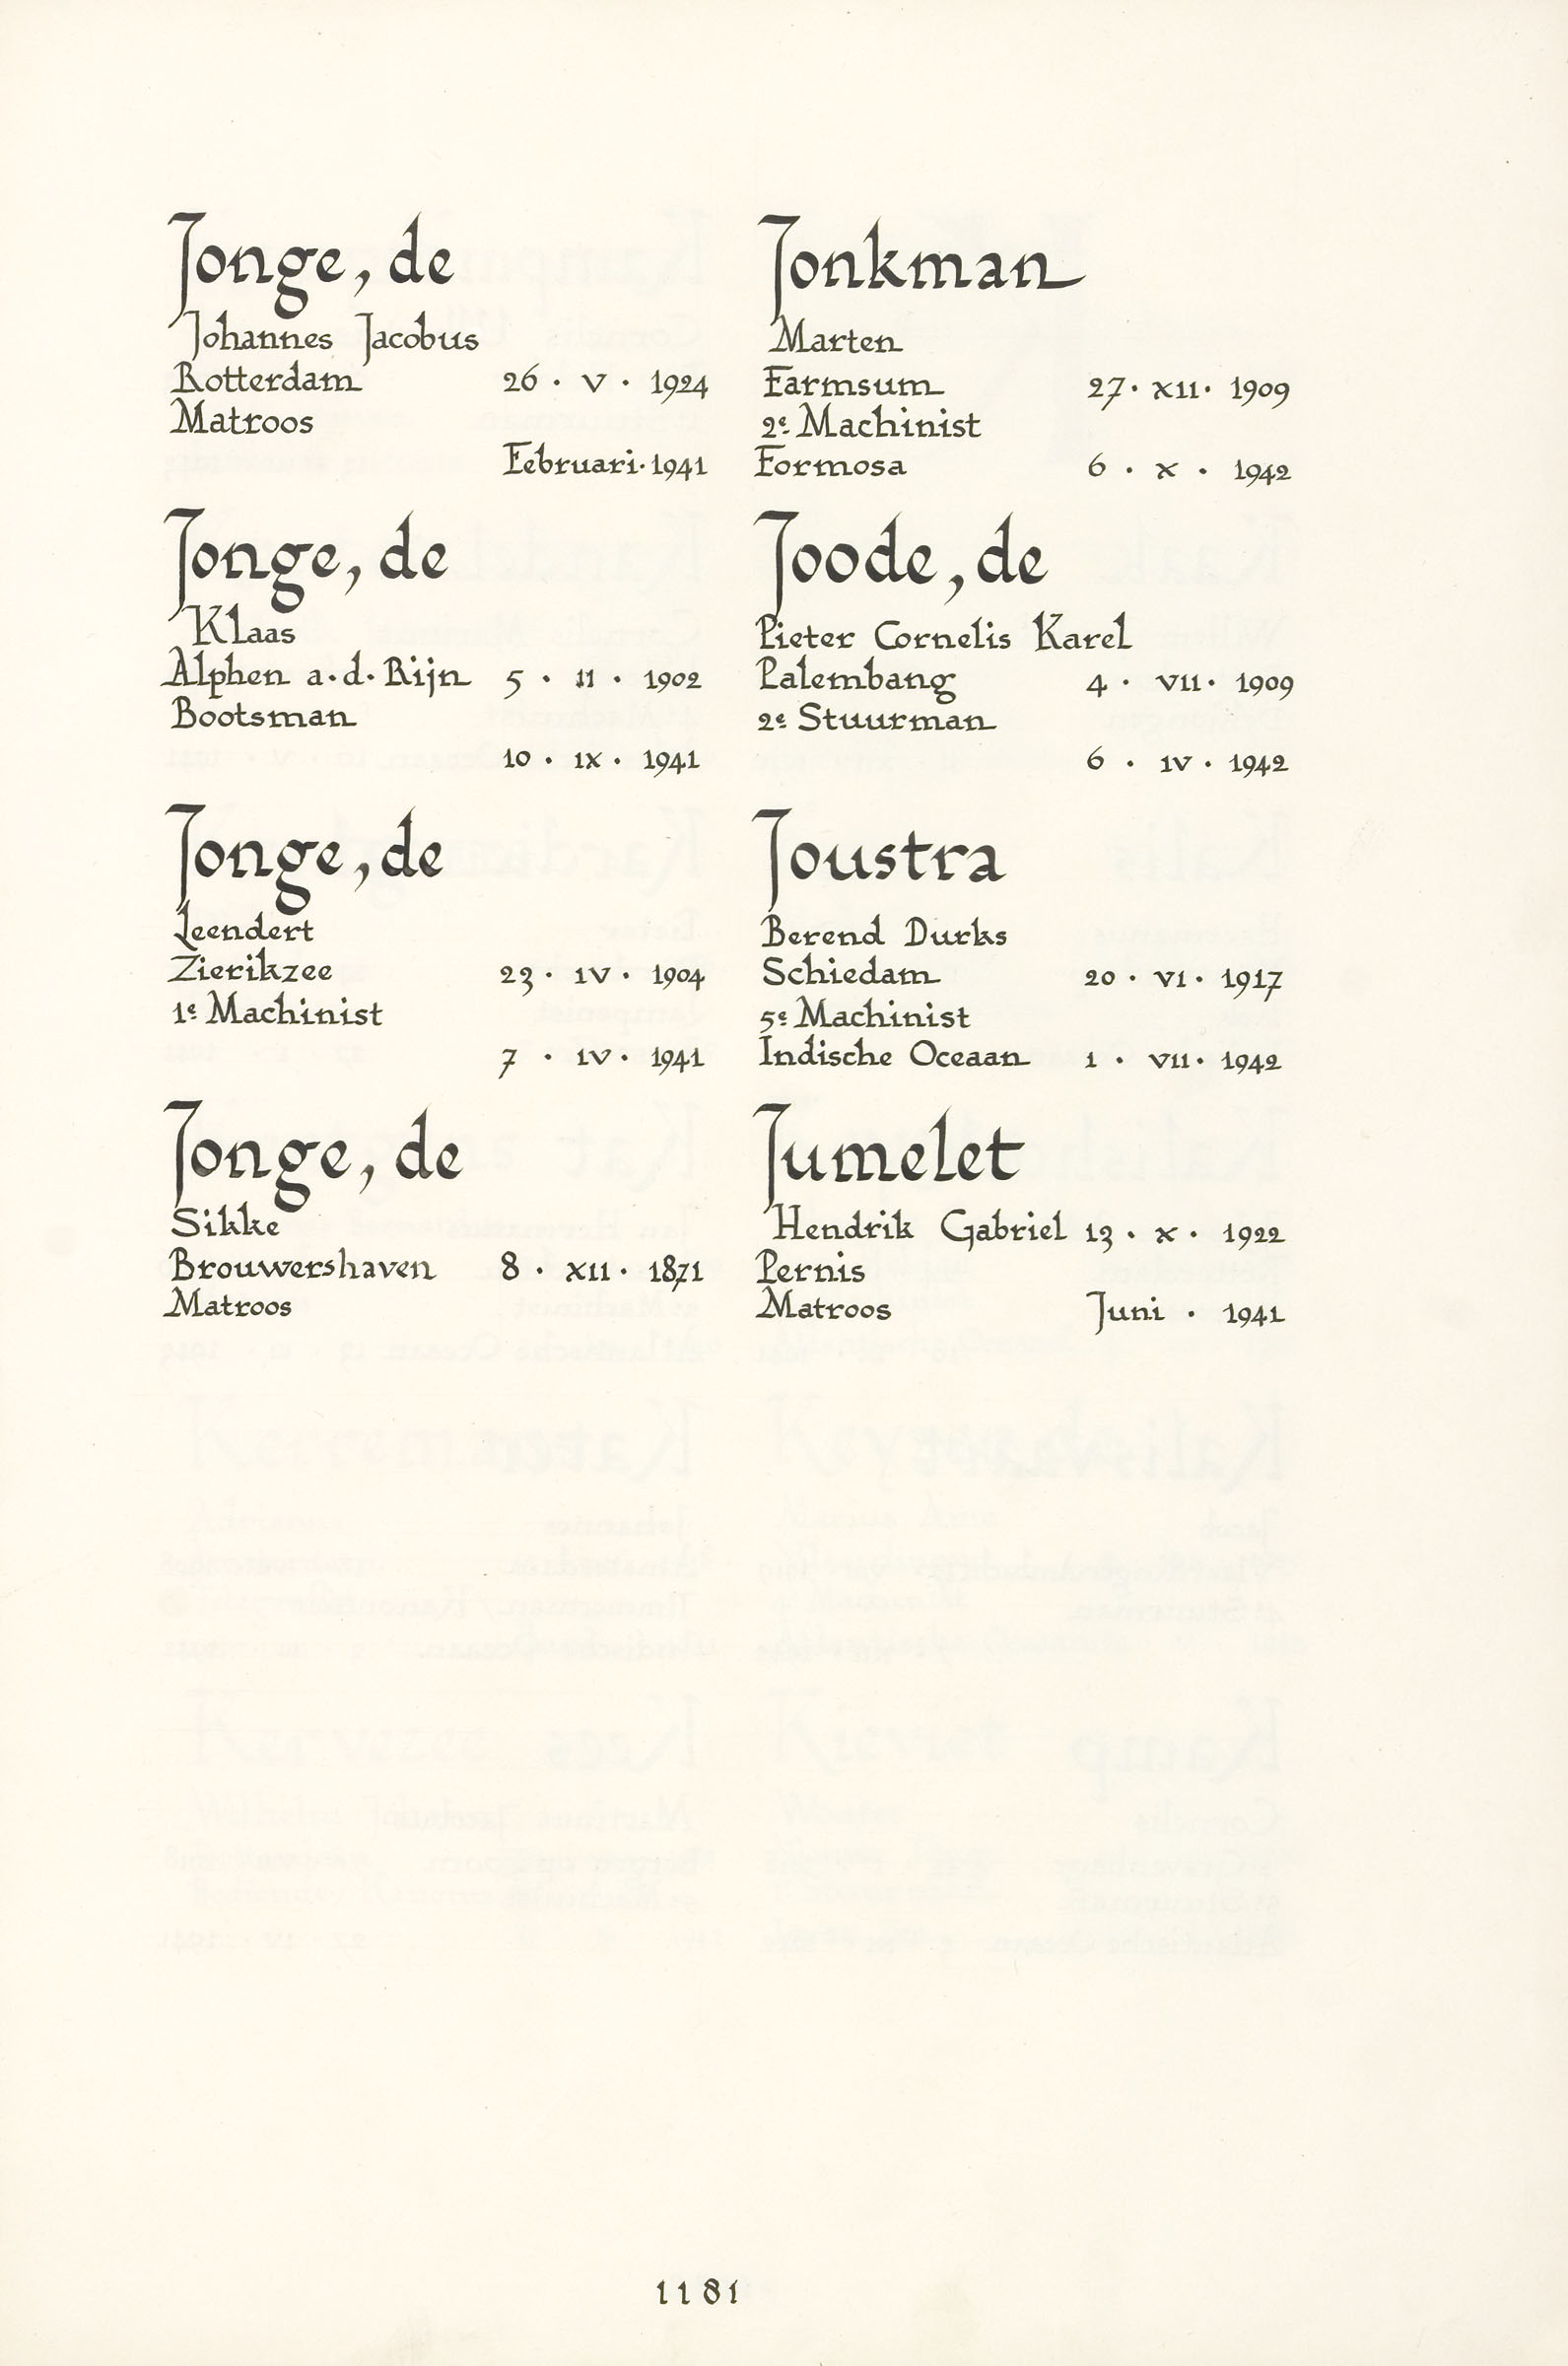 Jonge, de
Johannes Jacobus
Rotterdam 26 · V · 1924
Matroos
Februari · 1941
Jonge, de
Klaas
Alphen a·d·Rijn 5 · II · 1902
Bootsman
10 · IX · 1941
Jonge, de
Leendert
Zierikzee 23 · IV · 1904
1e Machinist
7 · IV · 1941
Jonge, de
Sikke
Brouwershaven 8 · XII · 1871
Matroos
Jonkman
Marten
Farmsum 27 · XII · 1909
2e Machinist
Formosa 6 · X · 1942
Joode, de
Pieter Cornelis Karel
Palembang 4 · VII · 1909
2e Stuurman
6 · IV · 1942
Joustra
Berend Durks
Schiedam 20 · VI · 1917
5e Machinist
Indische Oceaan 1 · VII · 1942
Jumelet
Hendrik Gabriel 13 · X · 1922
Pernis
Matroos Juni · 1941
1181